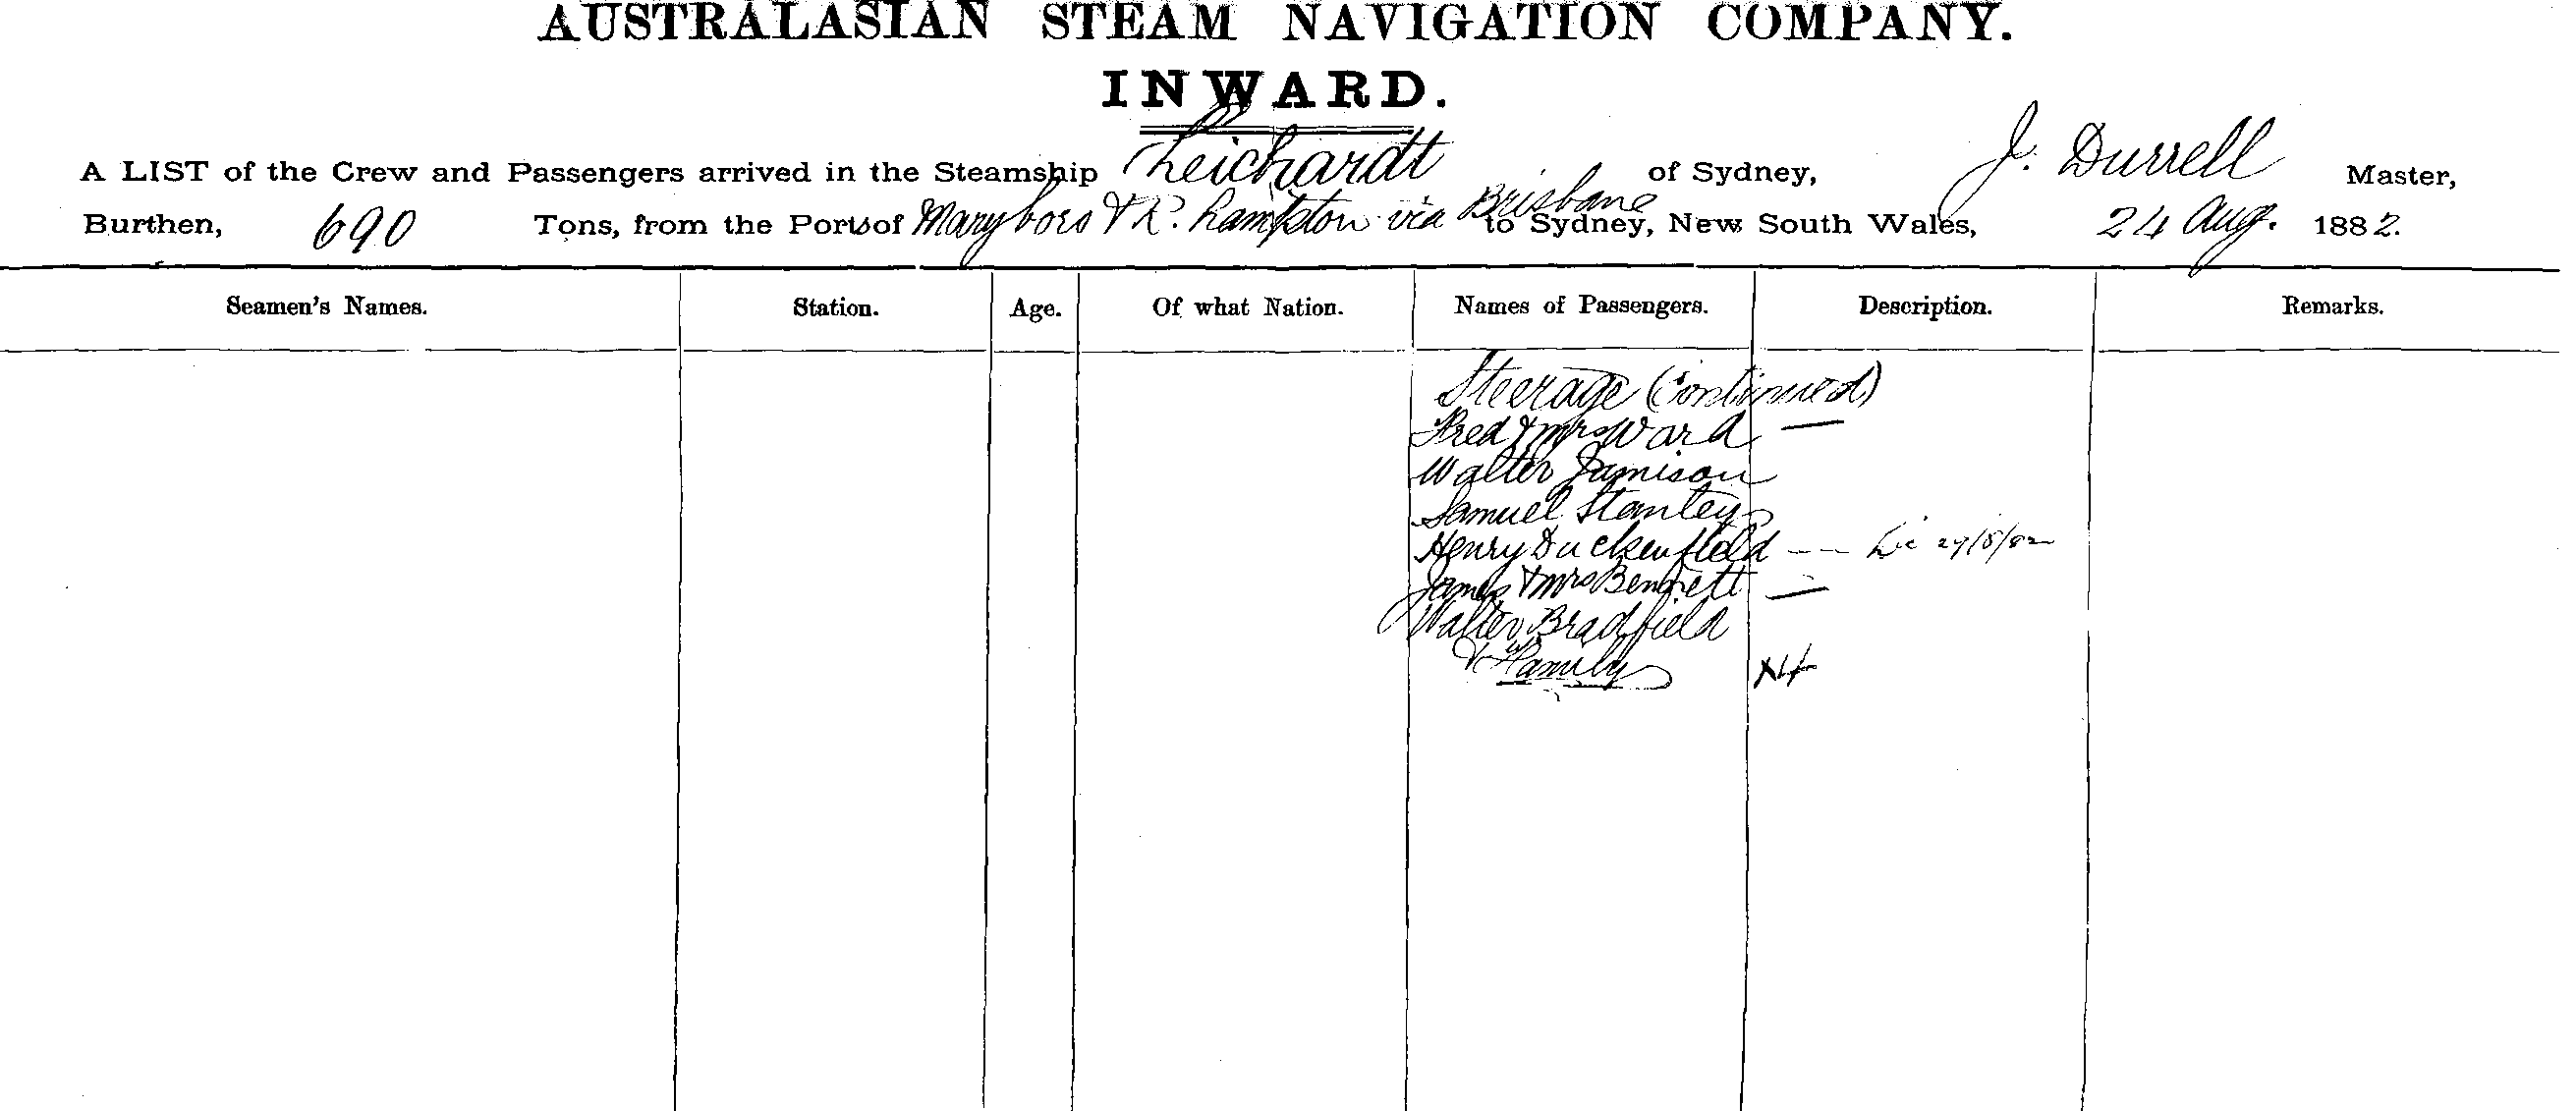 AUSTRALASIAN STEAM NAVIGATION COMPANY.
INWARD.
A LIST of the Crew and Passengers arrived in the Steamship Leichardt of Sydney, J. Durrell Master,
Burthen, 690 Tons, from the Ports of Maryboro & R. hampton via Brisbane to Sydney, New South Wales, 24 Aug. 1882.
Seamen's Names. Station. Age. Of what Nation. Names of Passengers. Description. Remarks.
Steerage (Continued)
Fred & Mrs Ward —
Walter Jamison
Samuel Stanley
Henry Duckenfield — — 27/8/82
James & Mrs Bennett —
Walter Bradfield
& Family X4